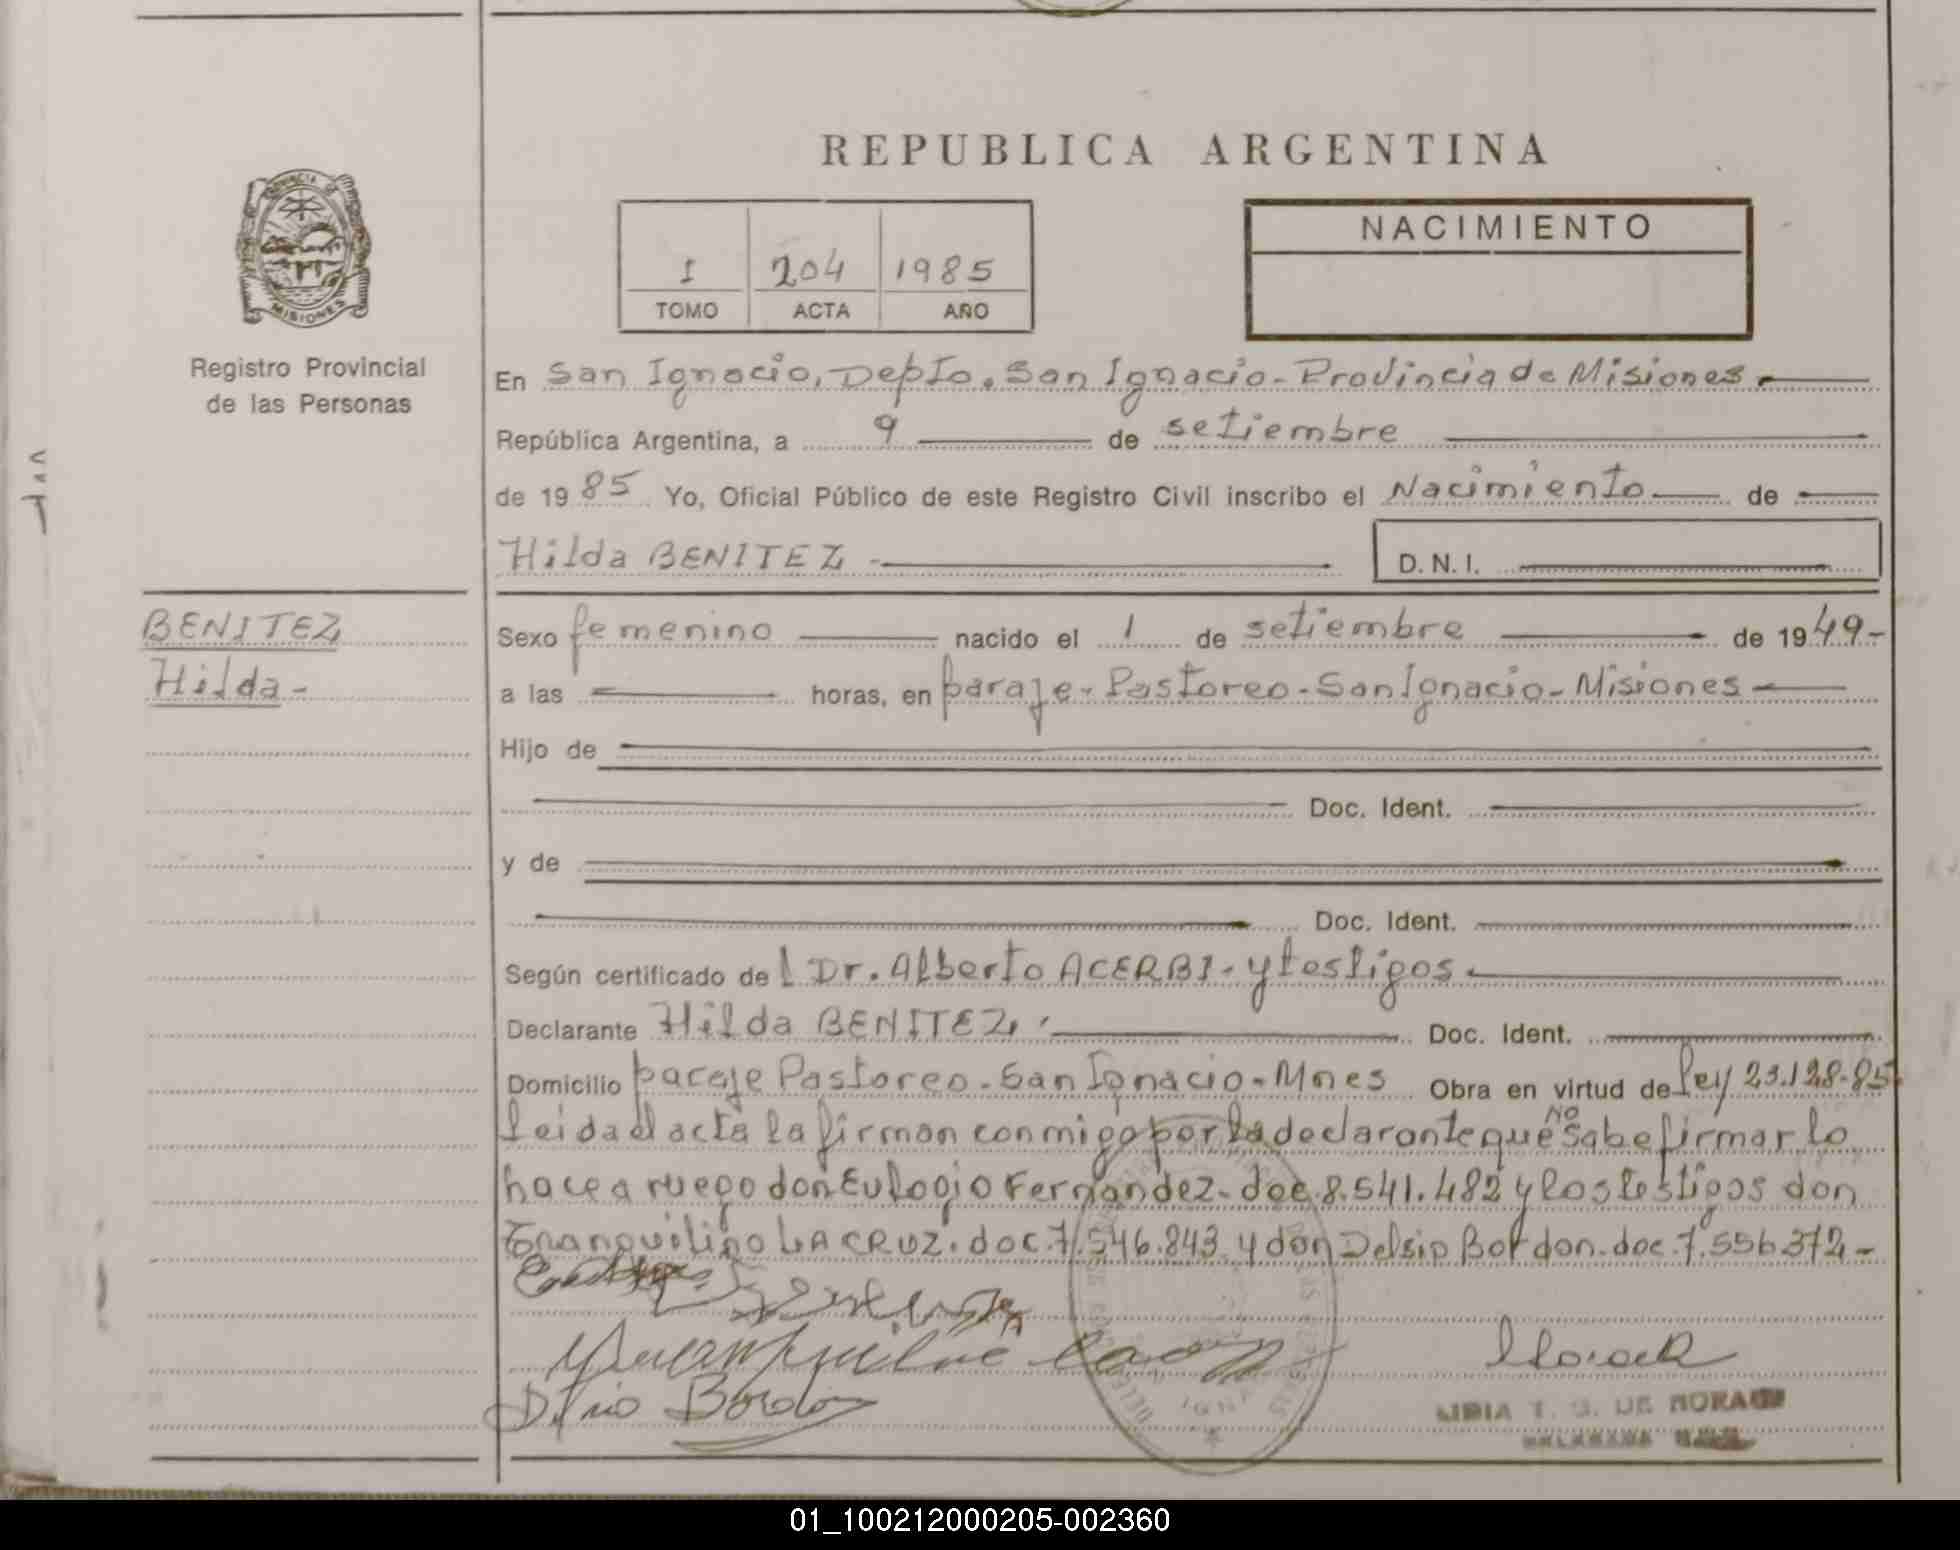 REPUBLICA ARGENTINA
PROVINCIA DE
MISIONES
Registro Provincial
de las Personas
1 204 1985
TOMO ACTA AÑO
NACIMIENTO
En San Ignacio, Depto. San Ignacio - Provincia de Misiones
República Argentina, a 9 de setiembre
de 1985 Yo, Oficial Público de este Registro Civil inscribo el Nacimiento de
Hilda BENITEZ D.N.I.
BENITEZ
Hilda -
Sexo femenino nacido el 1 de setiembre de 1949-
a las horas, en paraje - Pastoreo - San Ignacio - Misiones
Hijo de
Doc. Ident.
y de
Doc. Ident.
Según certificado del Dr. Alberto ACERBI - y testigos
Declarante Hilda BENITEZ Doc. Ident.
Domicilio paraje Pastoreo - San Ignacio - Mnes Obra en virtud de ley 23.128-85
leida el acta la firman conmigo por la declarante que no sabe firmar lo
hace a ruego don Eulogio Fernandez - doc. 8.541.482 y los testigos don
Tranquilino LA CRUZ. doc. 7.546.843 y don Delsio Bordon. doc. 7.556.372 -
Bordon
DE MORA
01_100212000205-002360